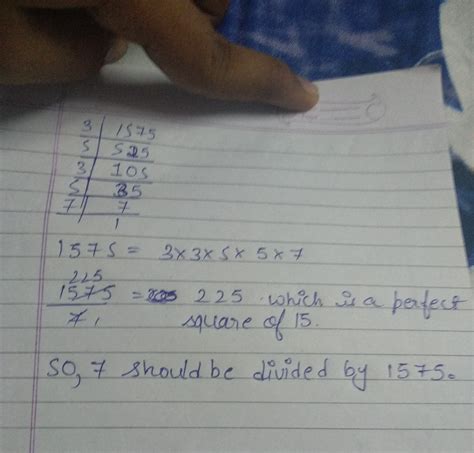 3 | 1575
5 | 525
3 | 105
5 | 35
7 | 7
1
1575 = 3×3×5×5×7
225
1575 = 225 which is a perfect
7 1 square of 15.
SO, 7 should be divided by 1575.